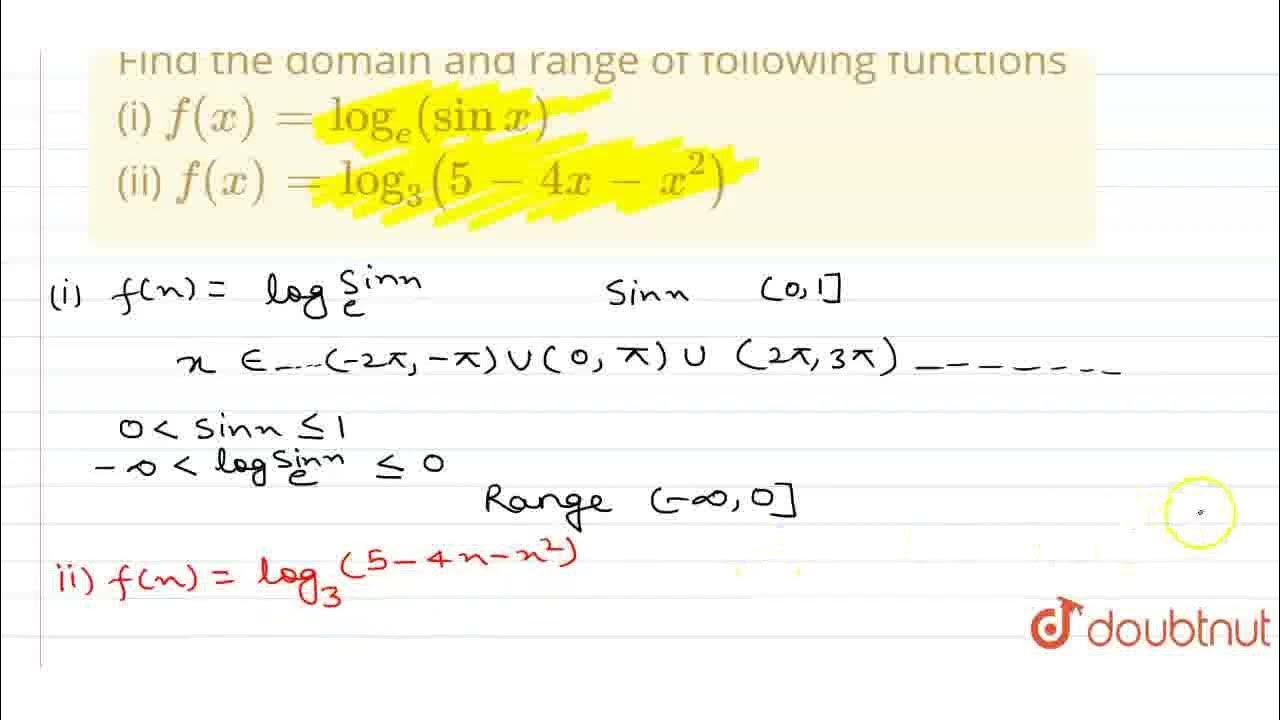 Find the domain and range of following functions
(i) f(x) = logₑ(sin x)
(ii) f(x) = log₃(5 − 4x − x²)
(i) f(x) = logₑ sinx    sinx    (0,1]
x ∈ ....(-2π, -π) ∪ (0, π) ∪ (2π, 3π) _ _ _ _ _ _ _
0 < sinx ≤ 1
-∞ < logₑ sinx ≤ 0
Range (-∞, 0]
ii) f(x) = log₃(5-4x-x²)
doubtnut